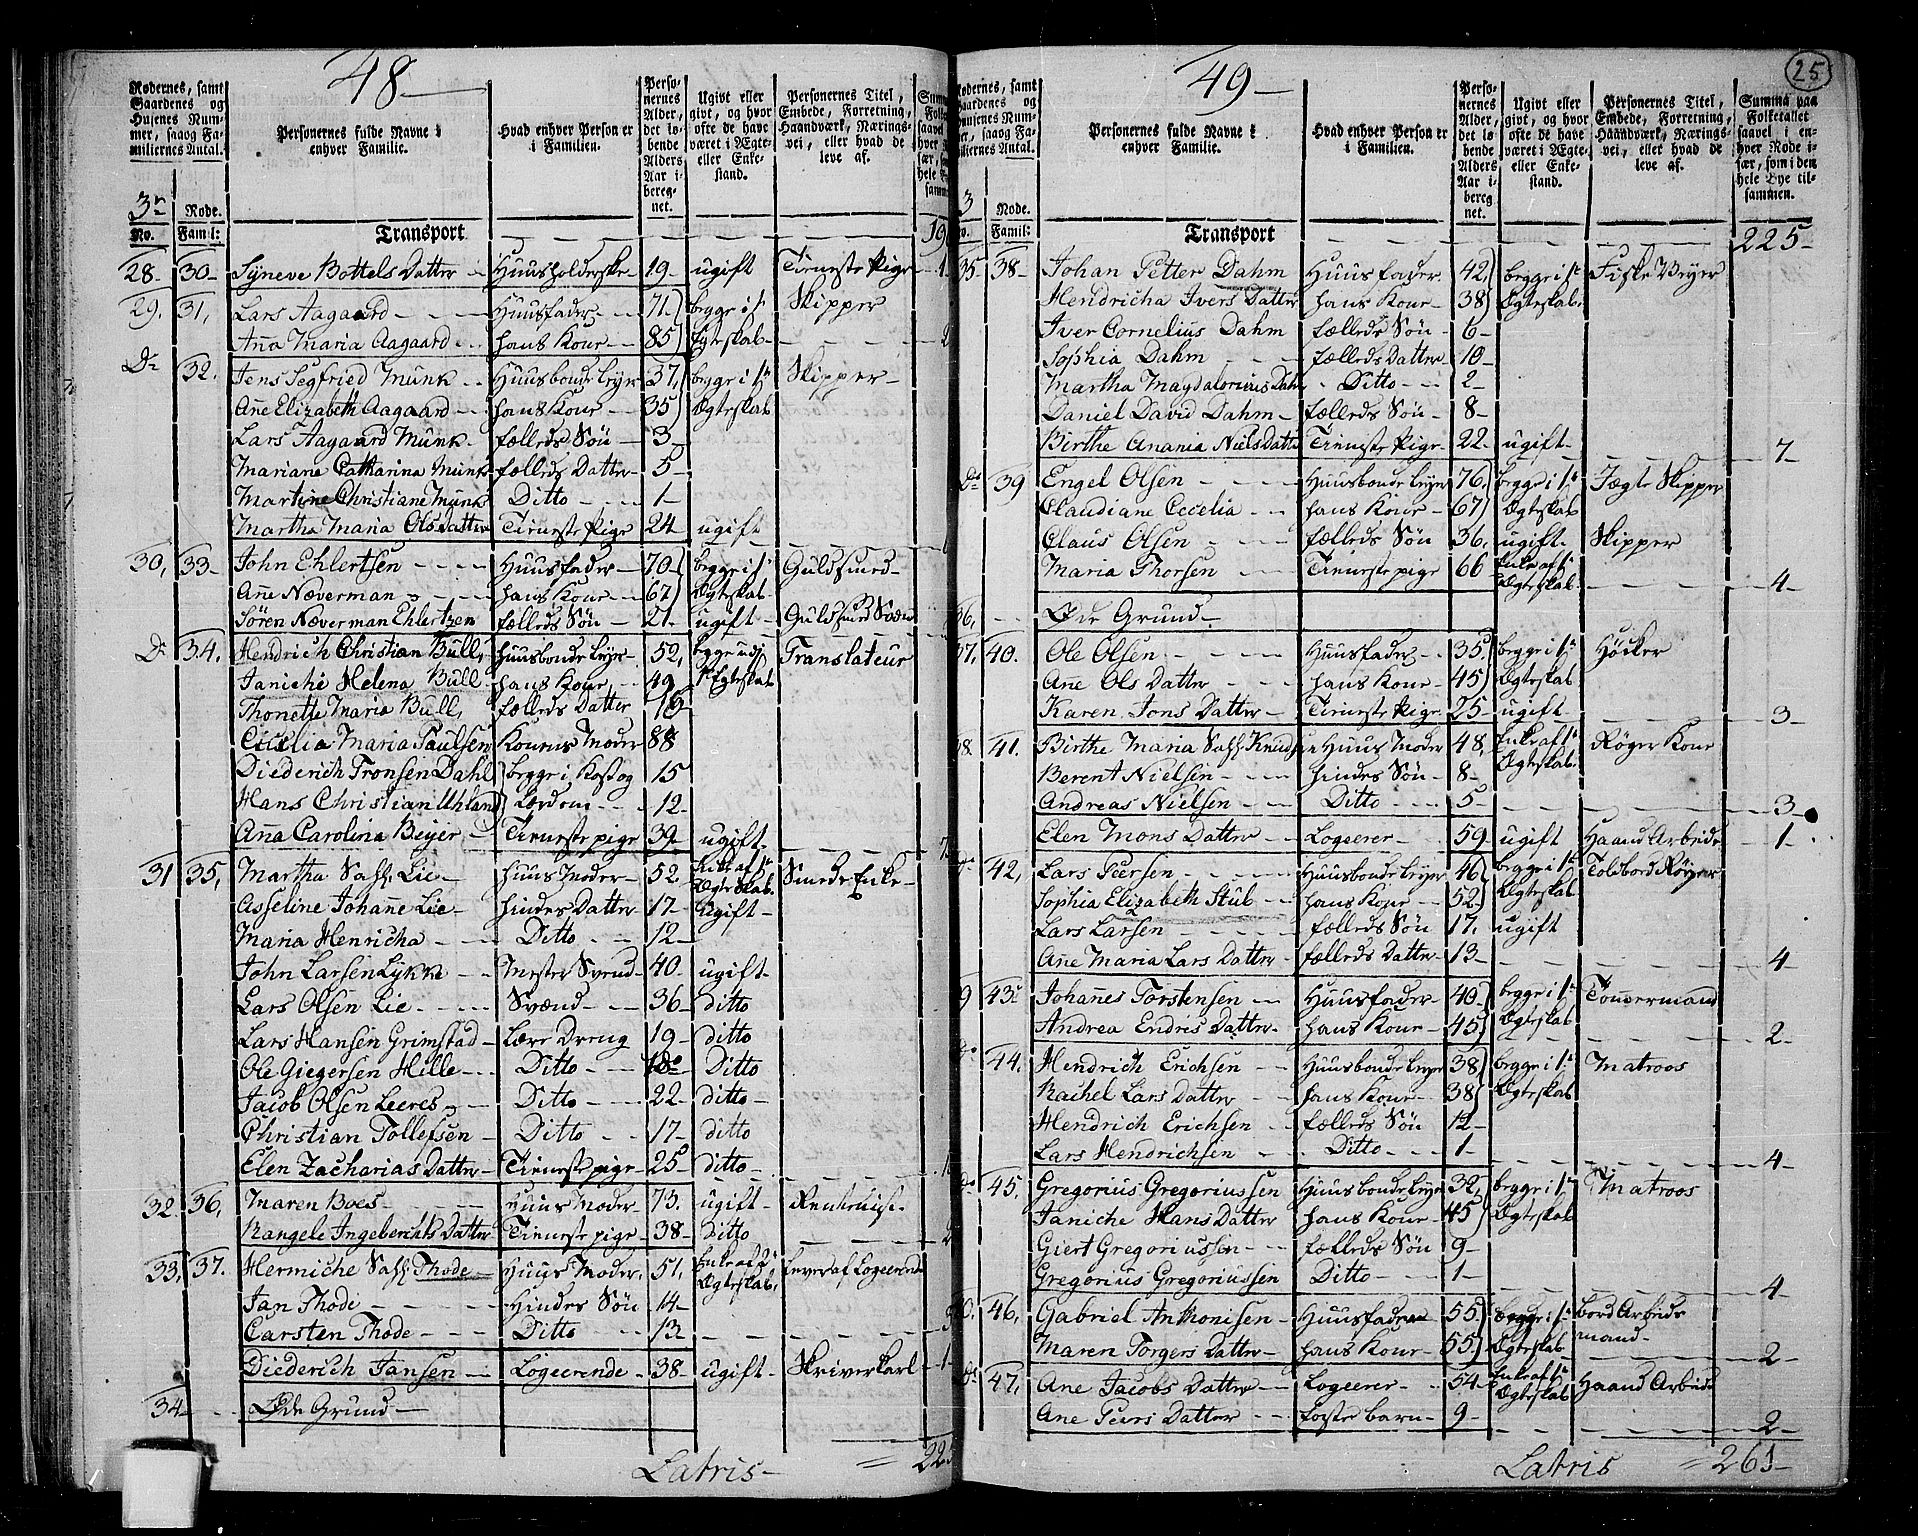 48
Rodernes, samt Gaardenes og Husenes Nummer, saaog Familiernes Antal.
Personernes fulde Navne i enhver Familie.
Hvad enhver Person er i Familien.
Personernes Alder, det løbende Alders Aar iberegnet.
Ugivt eller givt, og hvor ofte de have været i Ægte- eller Enkestand.
Personernes Titel, Embede, Forretning, Haandværk, Næringsvei, eller hvad de leve af.
3n Rode.
No. Famil:
Transport
28 30 Syneve Bottels Datter Huusholderske 19 ugift Tieneste Pige 1
29. 31, Lars Aagaard Huusfader 71) begge i 1te Skipper
Anna Maria Aagaard hans Kone 85) Egteskab 2
Do 32. Jens Segfried Munk Huusbonde Leyer 37, begge i 1te Skipper
Ane Elizabeth Aagaard hans Kone 35) Ægteskab
Lars Aagaard Munk fælleds Søn 3
Mariane Catharina Munk fælleds Datter 5
Martine Christiane Munk Ditto 1
Martha Maria Olsdatter Tieneste Pige 24 ugift
30, 33 John Ehlertsen Huusfader 70) begge i 1te Guldsmed
Ane Næverman hans Kone 67) Ægteskab
Sören Næverman Ehlertzen fælleds Søn 21. ugift Guldsmed Svend
Do 34. Hendrich Christian Bull, huusbonde Leyer 52, begge udj Translateur
Janiche Helena Bull hans Kone 49 1te Egteskab
Thonette Maria Bull, fælleds Datter 16
Cicilia Maria Paulsen Konens Moder 88
Diederich Tronsen Dahl begge i Kost og 15
Hans Christian Uhland Lærdom 12
Anna Carolina Beyer Tieneste pige 39 ugift 7
31 35, Martha Sal. Lie huus Moder 52. Enke af 1te Ægteskab Smede Enke
Asseline Johanne Lie hindes Datter 17 Ugift
Maria Henricha Ditto 12
John Larsen Lykke Mester Svend 40 ugift
Lars Olsen Lie Svænd 36 ditto
Lars Hansen Grimstad Lære Dreng 19 ditto
Ole Giegersen Hille Ditto 18 Ditto
Jacob Olsen Leeres Ditto 22 ditto
Christian Tollefsen Ditto 17 ditto
Elen Zacharias Datter Tieneste pige 25 ditto
32. 36, Maren Boes Huus Moder 73. ugift Renteniist.
Rangele Ingeberichts Datter Tieneste pige 38 Ditto 2
33, 37. Hermiche Sal. Thode Huus Moder. 51, Enke af 1te Ægteskab, Lever af Logeerende
Jan Thode Hindes Søn 14
Carsten Thode Ditto 13
Diederich Jansen Logeerende 38 ugift Skriverkarl 1
34 Øde Grund
Latris = 225
49
25
Rodernes, samt Gaardenes og Husenes Nummer, saaog Familiernes Antal.
Personernes fulde Navne i enhver Familie.
Hvad enhver Person er i Familien.
Personernes Alder, det løbende Alders Aar iberegnet.
Ugivt eller givt, og hvor ofte de have været i Ægte- eller Enkestand.
Personernes Titel, Embede, Forretning, Haandværk, Næringsvei, eller hvad de leve af.
Summa paa Folketallet saavel i enhver Rode især, som i den hele Bye tilsammen.
3 Rode.
No. Famil:
Transport 225
35 38 Johan Petter Dahm Huusfader 42) begge i 1te Fiske Vejer
Hendricha Ivers Datter hans Kone 38) Ægteskab.
Iver Cornelius Dahm fælleds Søn 6
Sophia Dahm fælleds Datter 10
Martha Magdalorius Dahm Ditto 2
Daniel David Dahm fælleds Søn 8
Birthe Anania Nielsdatter Tieneste Pige 22 ugift 7
Do 39 Engel Olsen Huusbonde Leyer 76, begge i 1te Jægte Skipper
Claudiane Cecelia hans Kone 67) Ægteskab
Claus Olsen fælleds Søn 36, ugift Skipper
Maria Thorsen Tieneste pige 66 Enke af 1te Ægteskab 4
36, Øde Grund
37, 40. Ole Olsen Huusfader 35) begge i 1te Höcker
Ane Ols Datter hans Kone 45) Ægteskab
Karen Jons Datter Tieneste Pige 25 ugift 3
38. 41. Birthe Maria Sal. Knudsen Huus Moder 48, Enke af 1te Ægteskab. Røger Kone
Berent Nielsen hindes Søn 8
Andreas Nielsen Ditto 5 3
Elen Mons Datter Logeerer 59 ugift Haand Arbeide 1
Do 42, Lars Peersen Huusbonde Leyer 46) begge i 1te Tolbord Røyer
Sophia Elizabeth Stub hans Kone 52) Ægteskab
Lars Larsen fælleds Søn 17. ugift
Ane Maria Lars Datter fælleds Datter 13 4
39 43 Johannes Torstensen Huusfader 40) begge i 1te Tömmermand
Andrea Endres Datter hans Kone 45) Ægteskab 2
Do 44, Hendrich Erichsen Huusbonde Leyer 38) begge i 1te Matroos
Rachel Lars Datter hans Kone 38) Ægteskab
Hendrich Erichsen fælleds Søn 12
Lars Hendrichsen Ditto 1 4
Do 45. Gregorius Gregoriussen Huusbonde Leyer 32, begge i 1te Matroos
Janiche Hans Datter hans Kone 45) Ægteskab
Giert Gregoriussen fælleds Søn 9
Gregorius Gregoriussen Ditto 1 4
40. 46, Gabriel Anthonisen Huusfader 55) begge i 1te Bord Arbeids mand
Maren Torgers Datter hans Kone 55) Ægteskab 2
Do 47, Ane Jacobs Datter Logeerer 54 Enke af 1te Ægteskab Haand Arbeide
Ane Peers Datter foster barn 9 2
Latris = 261